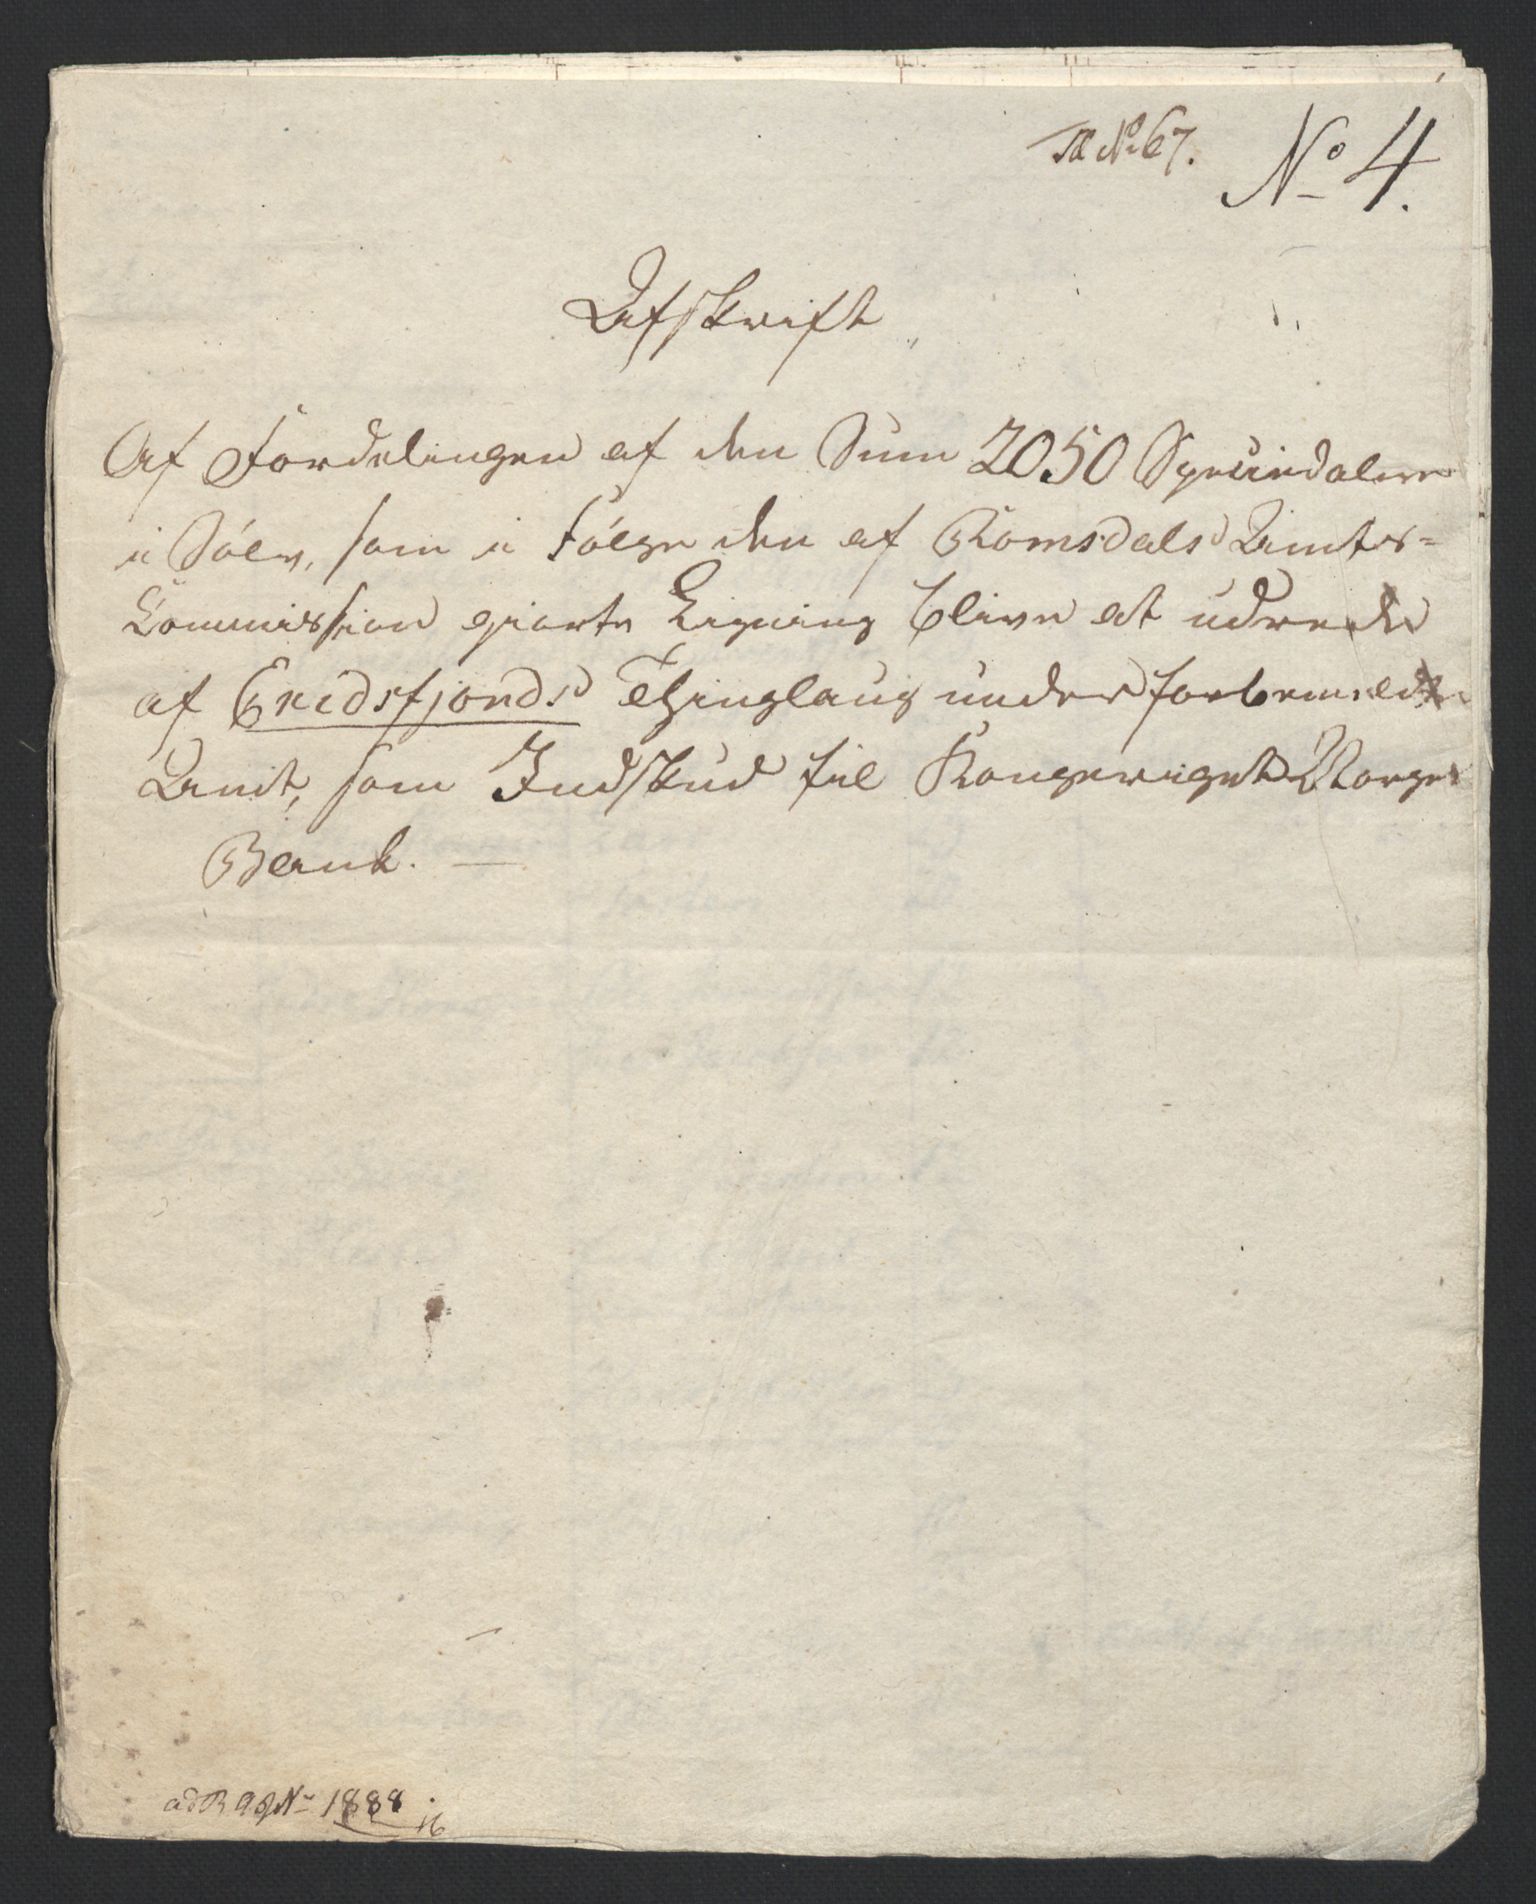 No 67.
No 4.
Afskrift
Af Fordelingen af den Sum 2050 Speciedaler
i Sölv, som i Fölge den af Romsdals Amts=
Commission giorte Ligning bliver at udrede
af Eridsfjords Thinglaug under forbemeldte
Amt, som Indskud til Kongeriget Norges
Bank. —
No 1888
16